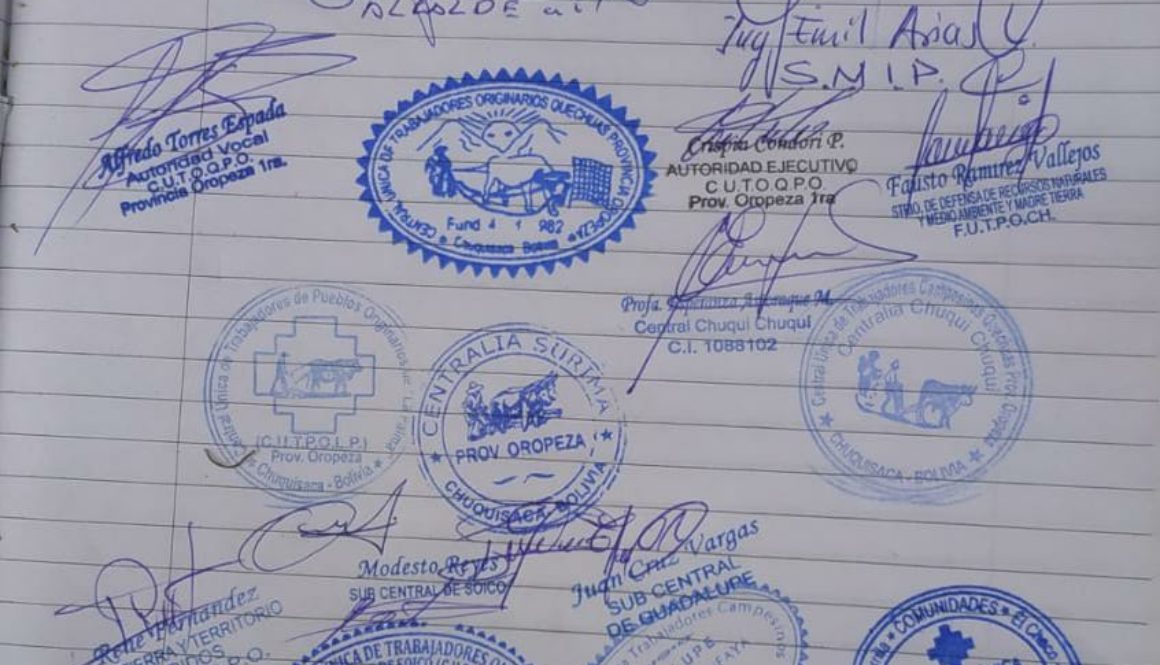 ALCALDE
Ing Emil Arias V.
S.M.I.P.
Alfredo Torres Espada
Autoridad Vocal
C.U.T.O.Q.P.O.
Provincia Oropeza 1ra.
CENTRAL UNICA DE TRABAJADORES ORIGINARIOS QUECHUAS PROVINCIA OROPEZA
Fund 4 1 982
Chuquisaca Bolivia
Crispin Condori P.
AUTORIDAD EJECUTIVO
C.U.T.O.Q.P.O.
Prov. Oropeza 1ra
Fausto Ramirez Vallejos
STRIO. DE DEFENSA DE RECURSOS NATURALES
Y MEDIO AMBIENTE Y MADRE TIERRA
F.U.T.P.O.CH.
Profa. M.
Central Chuqui Chuqui
C.I. 1088102
Central Unica de Trabajadores de Pueblos Originarios de "La Palma"
(C.U.T.P.O.L.P.)
Prov. Oropeza
Chuquisaca - Bolivia
CENTRALIA SURIMA
PROV OROPEZA
CHUQUISACA BOLIVIA
Central Unica de Trabajadores Campesinos Quechuas Prov. Oropeza
Centralia Chuqui Chuqui
CHUQUISACA - BOLIVIA
Modesto Reyes
SUB CENTRAL DE SOICO
Juan Cruz Vargas
SUB CENTRAL
DE GUADALUPE
Rene Fernandez
TIERRA Y TERRITORIO
UNICA DE TRABAJADORES
Trabajadores Campesinos
COMUNIDADES
El Chaco